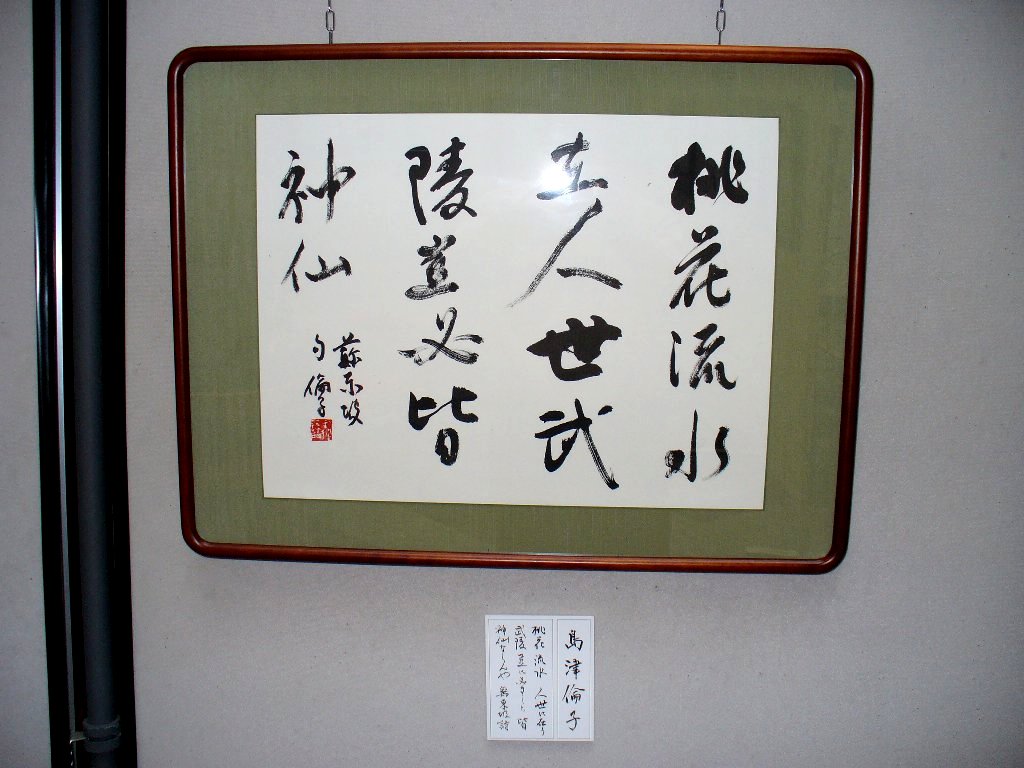 桃花流水
在人世武
陵豈必皆
神仙
蘇東坡
句 倫子
島津倫子
桃花流水 人世に在り
武陵豈に必ずしも 皆
神仙ならんや 蘇東坡詩